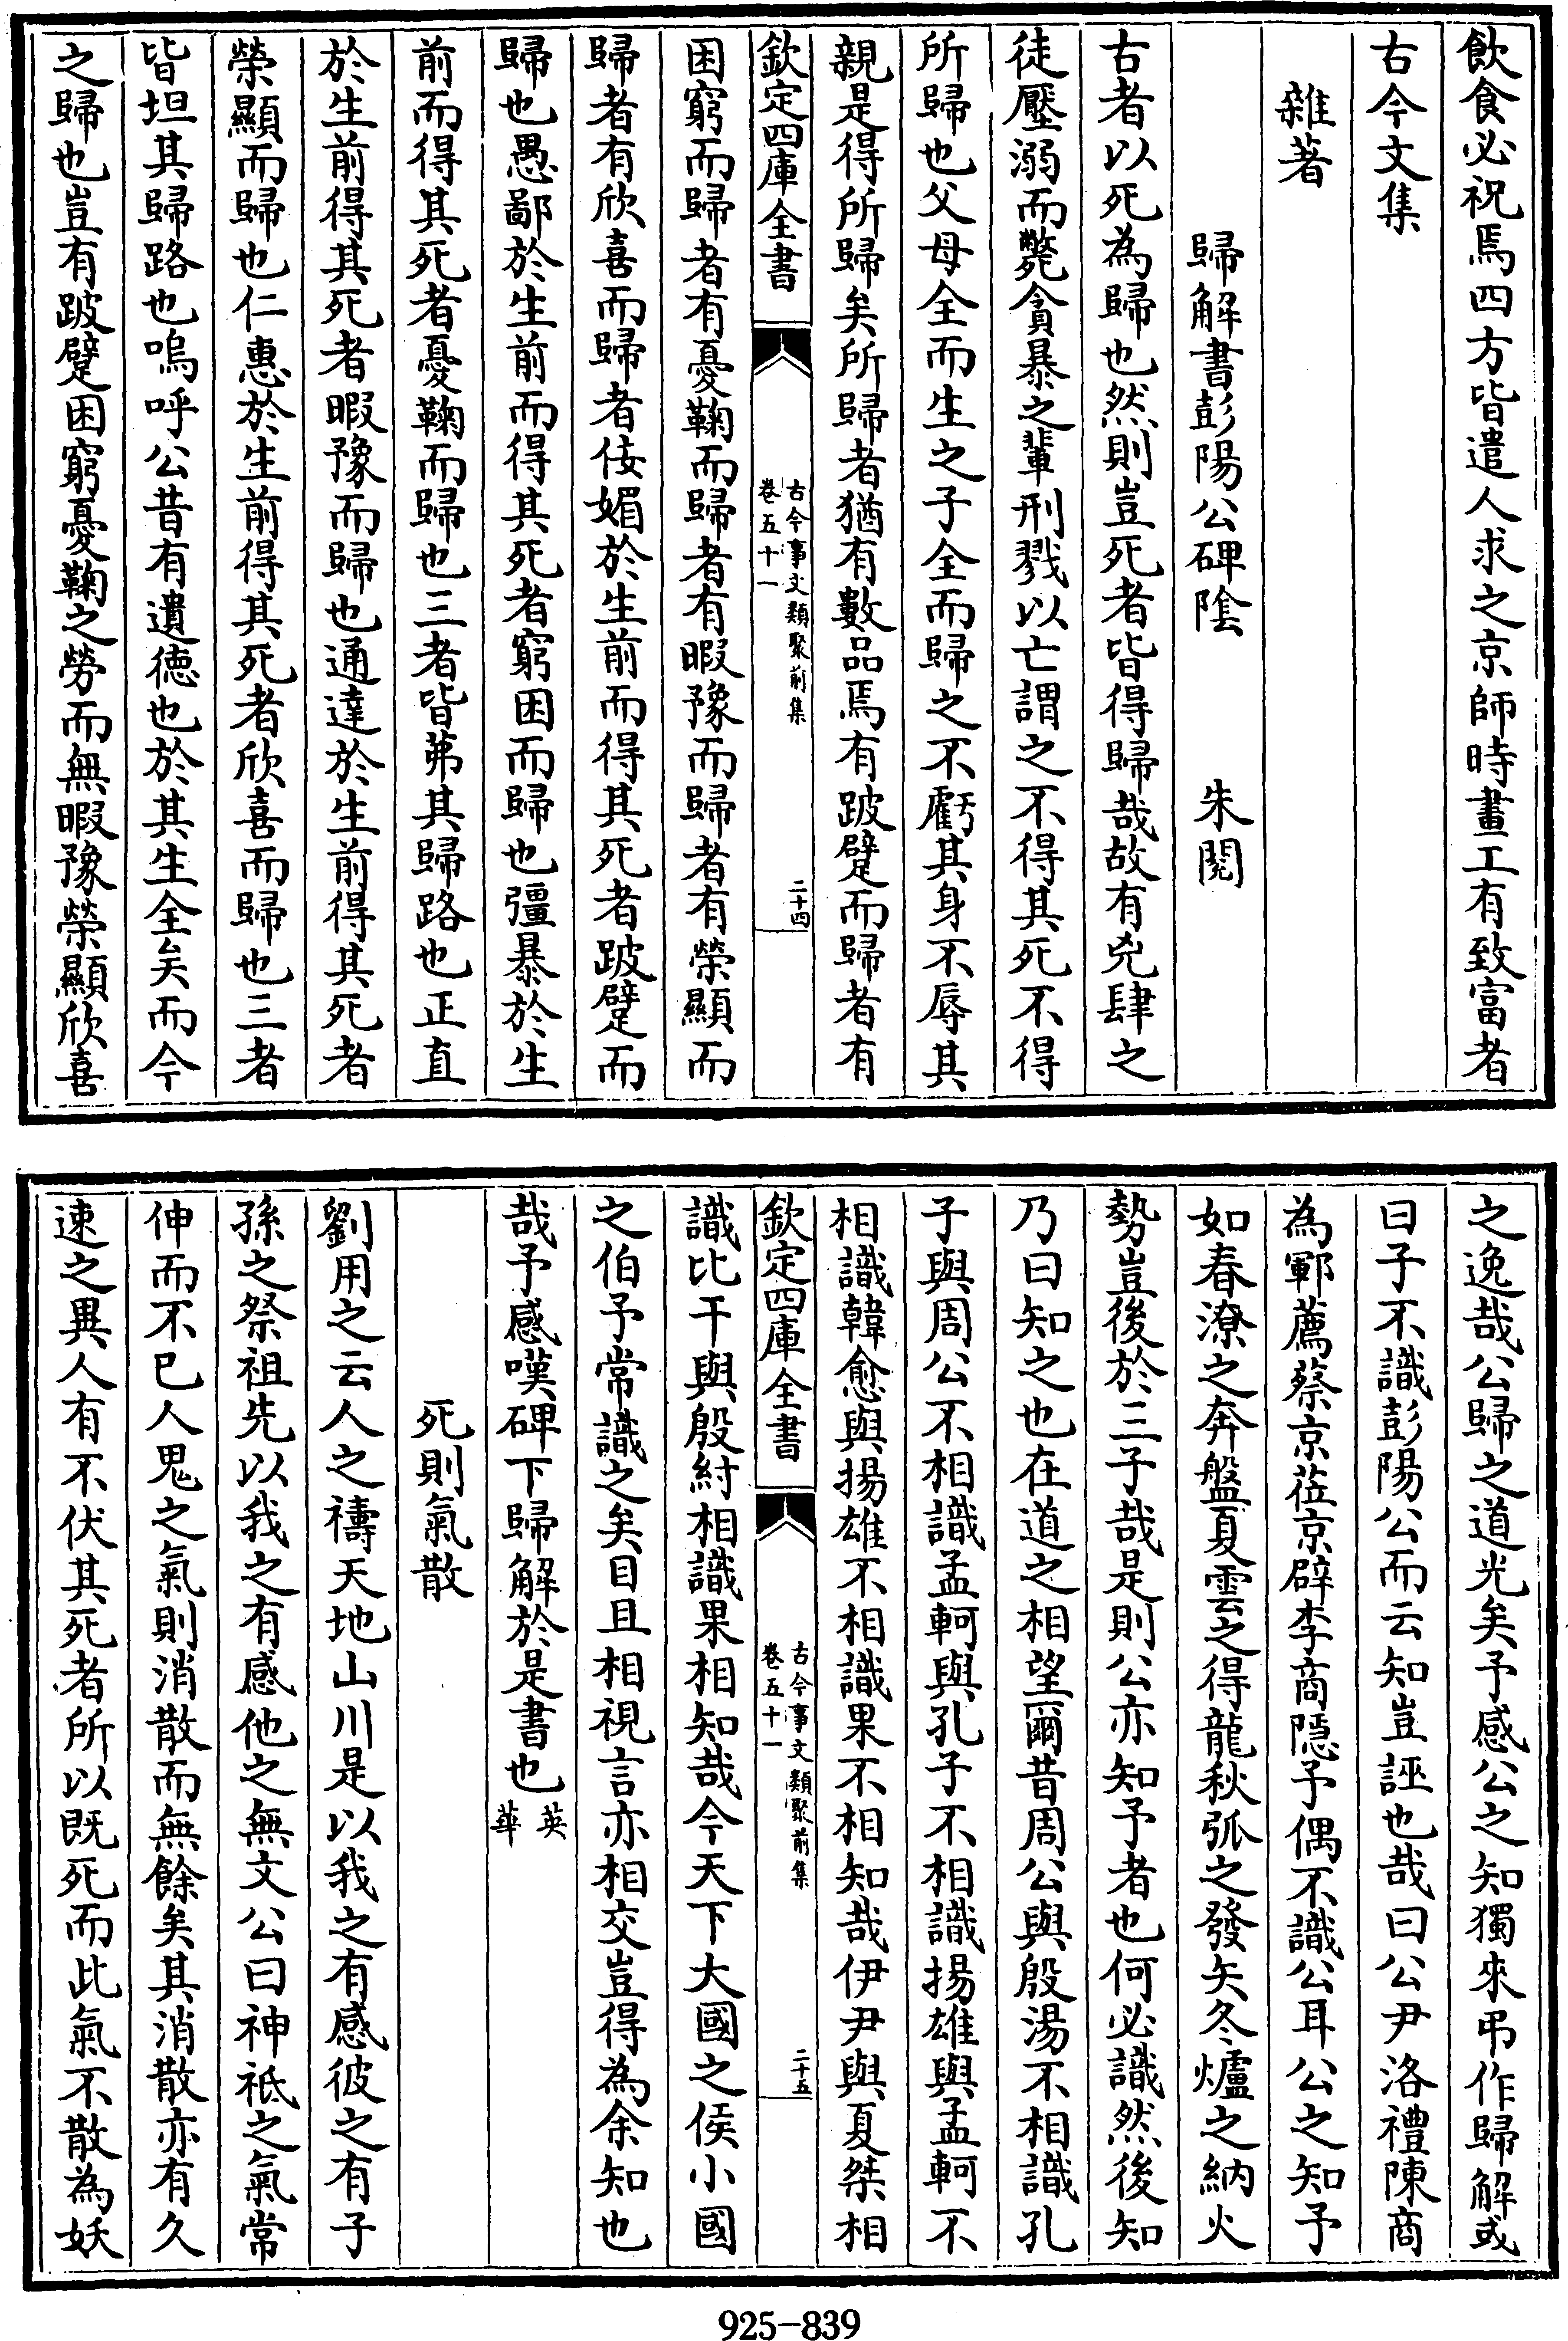 飲食必祝焉四方皆遣人求之京師時畫工有致富者
古今文集
雜著
歸解書彭陽公碑陰　朱閱
古者以死為歸也然則豈死者皆得歸哉故有兇肆之
徒壓溺而斃貪暴之輩刑戮以亡謂之不得其死不得
所歸也父母全而生之子全而歸之不虧其身不辱其
親是得所歸矣所歸者猶有數品焉有跛躄而歸者有
欽定四庫全書
古今事文類聚前集
卷五十一
二十四
困窮而歸者有憂鞠而歸者有暇豫而歸者有榮顯而
歸者有欣喜而歸者侫媚於生前而得其死者跛躄而
歸也愚鄙於生前而得其死者窮困而歸也彊暴於生
前而得其死者憂鞠而歸也三者皆茀其歸路也正直
於生前得其死者暇豫而歸也通達於生前得其死者
榮顯而歸也仁惠於生前得其死者欣喜而歸也三者
皆坦其歸路也嗚呼公昔有遺徳也於其生全矣而今
之歸也豈有跛躄困窮憂鞠之勞而無暇豫榮顯欣喜
之逸哉公歸之道光矣予感公之知獨來弔作歸解或
曰子不識彭陽公而云知豈誣也哉曰公尹洛禮陳商
為鄆薦蔡京莅京辟李商隱予偶不識公耳公之知予
如春潦之奔盤夏雲之得龍秋弧之發矢冬爐之納火
勢豈後於三子哉是則公亦知予者也何必識然後知
乃曰知之也在道之相望爾昔周公與殷湯不相識孔
子與周公不相識孟軻與孔子不相識揚雄與孟軻不
相識韓愈與揚雄不相識果不相知哉伊尹與夏桀相
欽定四庫全書
古今事文類聚前集
卷五十一
二十五
識比干與殷紂相識果相知哉今天下大國之侯小國
之伯予常識之矣目且相視言亦相交豈得為余知也
哉予感嘆碑下歸解於是書也英華
死則氣散
劉用之云人之禱天地山川是以我之有感彼之有子
孫之祭祖先以我之有感他之無文公曰神祇之氣常
伸而不已人鬼之氣則消散而無餘矣其消散亦有久
速之異人有不伏其死者所以既死而此氣不散為妖
925-839